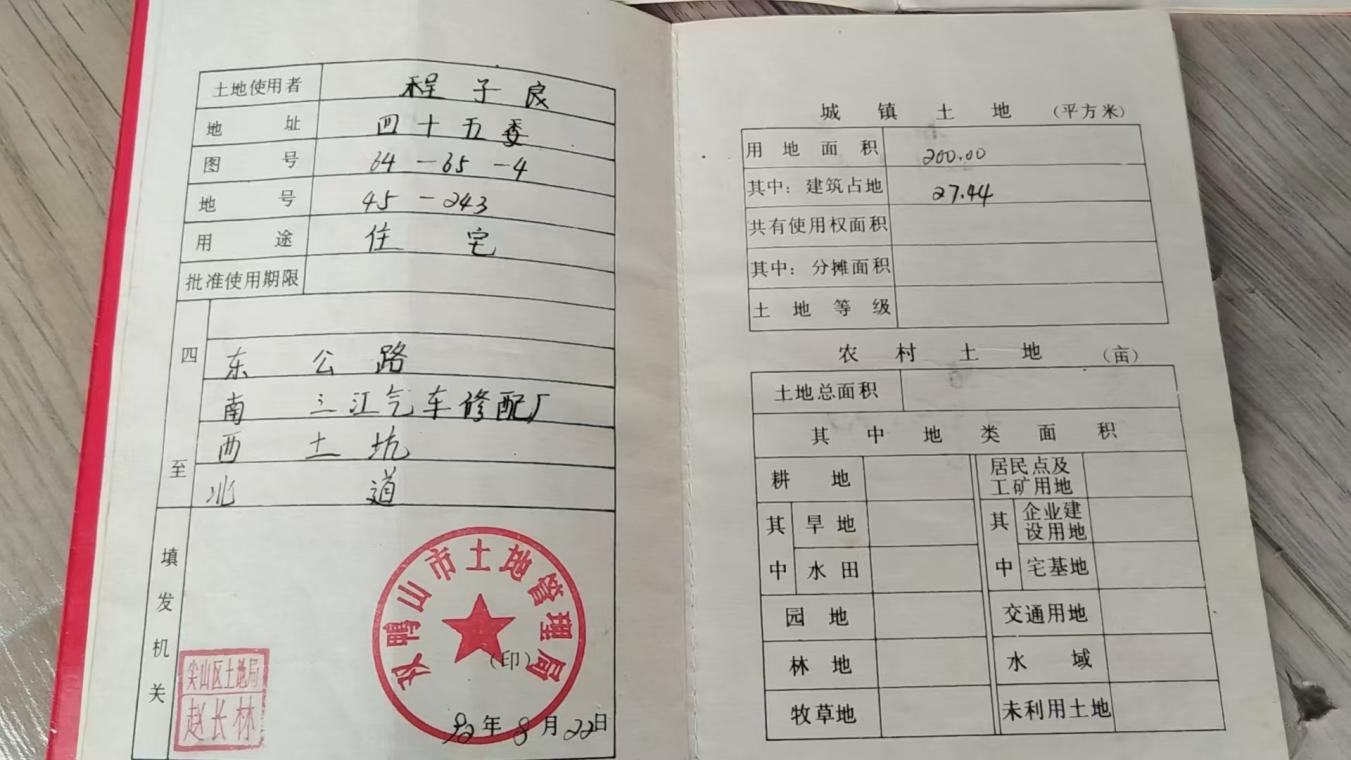 土地使用者 程子良
地址 四十五委
图号 64-65-4
地号 45-243
用途 住宅
批准使用期限
四至
东 公路
南 三江气车修配厂
西 土坑
北 道
填发机关
双鸭山市土地管理局
(印)
尖山区土地局
赵长林
92年8月22日
城镇土地 (平方米)
用地面积 200.00
其中:建筑占地 27.44
共有使用权面积
其中:分摊面积
土地等级
农村土地 (亩)
土地总面积
其中地类面积
耕地 居民点及工矿用地
其中 旱地 其中 企业建设用地
水田 宅基地
园地 交通用地
林地 水域
牧草地 未利用土地